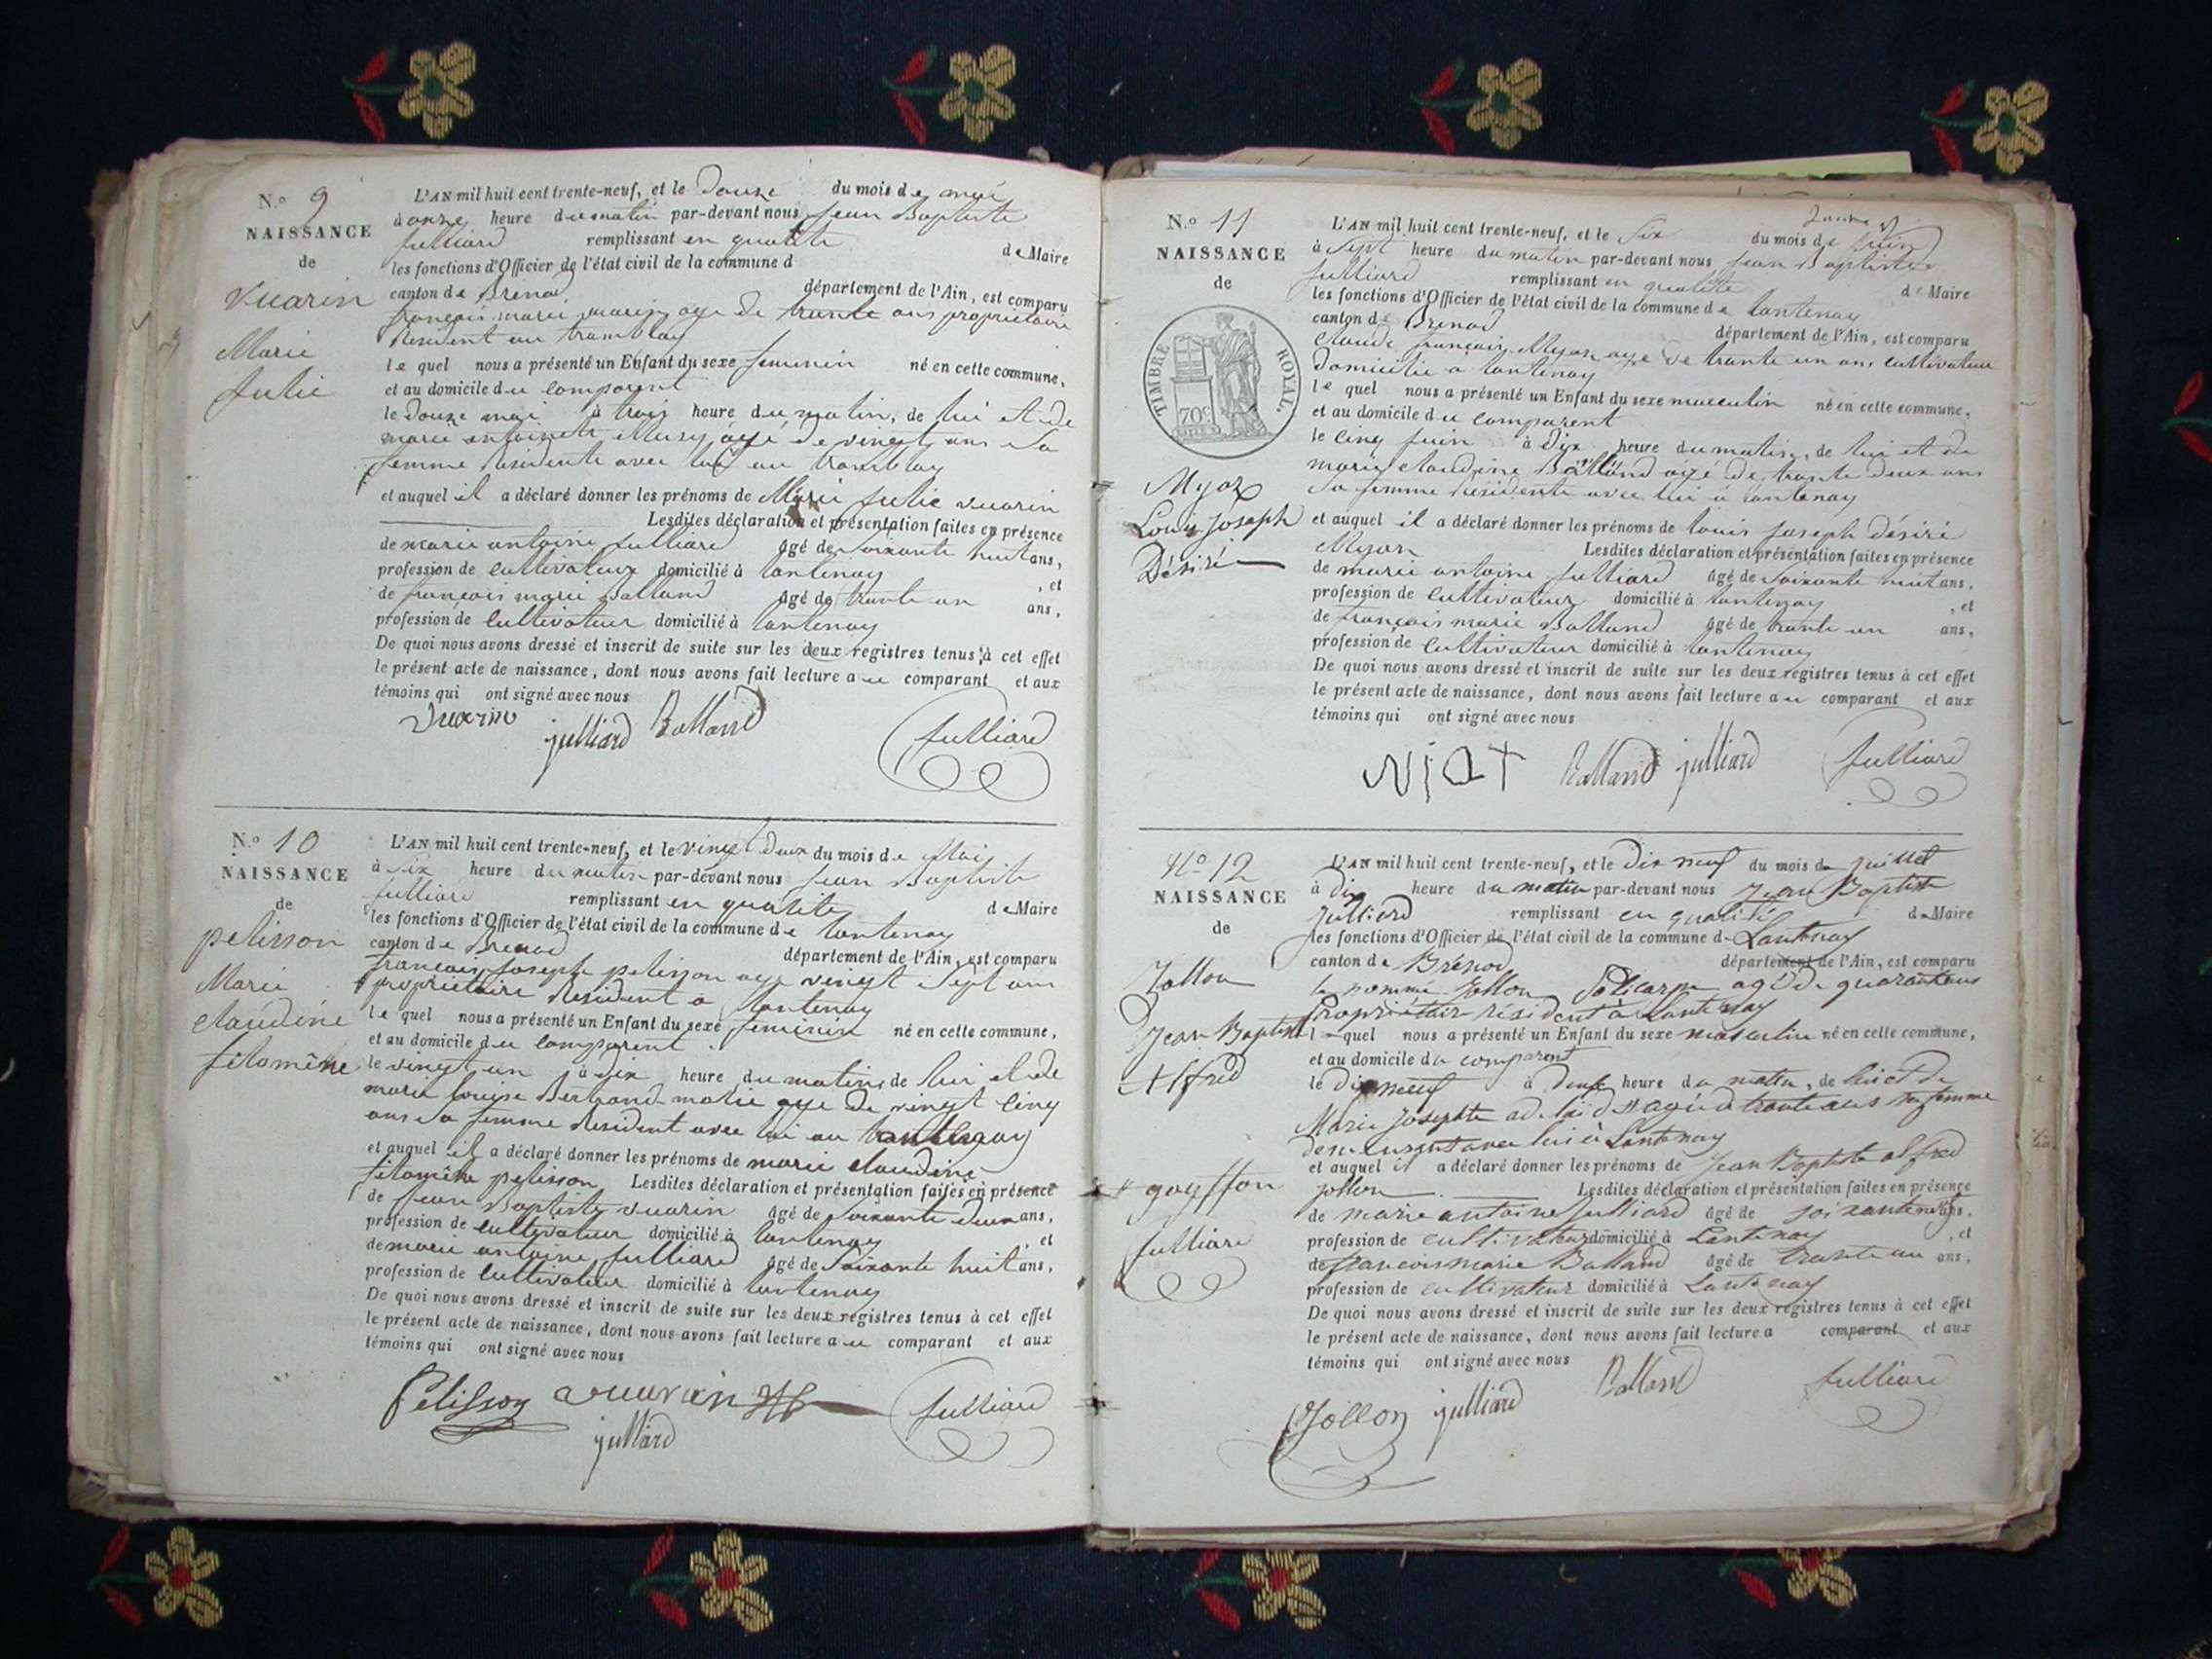 N.o 9
NAISSANCE
de
vuarin
Marie
Julie
L'AN mil huit cent trente-neuf, et le douze du mois de mai
à onze heure du matin par-devant nous Jean Baptiste
Julliard remplissant en qualité de Maire
les fonctions d'Officier de l'état civil de la commune d
canton de Brenod département de l'Ain, est comparu
françois marie vuarin age de trante ans propriétaire
Résident au tramblay
le quel nous a présenté un Enfant du sexe feminin né en cette commune,
et au domicile du comparent
le douze mai à trois heure du matin, de lui et de
marie antoinete Musy, agé de vingt ans sa
femme Residente avec lui au tramblay
et auquel il a déclaré donner les prénoms de Marie Julie vuarin
Lesdites déclaration et présentation faites en présence
de marie antoine Julliard âgé de Soixante huit ans,
profession de cultivateur domicilié à lantenay , et
de françois marie Balland âgé de trante un ans,
profession de cultivateur domicilié à lantenay
De quoi nous avons dressé et inscrit de suite sur les deux registres tenus à cet effet
le présent acte de naissance, dont nous avons fait lecture au comparant et aux
témoins qui ont signé avec nous
Vuarin julliard Balland Julliard
N.o 10
NAISSANCE
de
pelisson
Marie
claudine
filomêne
L'AN mil huit cent trente-neuf, et le vingt deux du mois de Mai
à Six heure du matin par-devant nous Jean Baptiste
Julliard remplissant en qualité de Maire
les fonctions d'Officier de l'état civil de la commune de lantenay
canton de Brenod département de l'Ain, est comparu
francois Joseph pelisson age vingt Sept ans
propriétaire Resident a lantenay
le quel nous a présenté un Enfant du sexe feminin né en cette commune,
et au domicile du comparent
le vingt un à dix heure du matin, de lui et de
marie louise Bertrand age de vingt cinq
ans sa femme Resident avec lui au
et auquel il a déclaré donner les prénoms de marie claudine
filomêne pelisson Lesdites déclaration et présentation faites en présence
de Jean Baptiste vuarin âgé de Soixante deux ans,
profession de cultivateur domicilié à lantenay , et
de marie antoine Julliard âgé de Soixante huit ans,
profession de cultivateur domicilié à lantenay
De quoi nous avons dressé et inscrit de suite sur les deux registres tenus à cet effet
le présent acte de naissance, dont nous avons fait lecture au comparant et aux
témoins qui ont signé avec nous
Pelisson vuarin Julliard
julliard
N.o 11
NAISSANCE
de
TIMBRE ROYAL.
70c
Myon
Louis Joseph
Désiré
L'AN mil huit cent trente-neuf, et le Six du mois de Juin
à Sept heure du matin par-devant nous Jean Baptiste
Julliard remplissant en qualité de Maire
les fonctions d'Officier de l'état civil de la commune de lantenay
canton de Brenod département de l'Ain, est comparu
claude françois Myon age de trante un ans cultivateur
domicilie a lantenay
le quel nous a présenté un Enfant du sexe masculin né en cette commune,
et au domicile du comparent
le cinq Juin à dix heure du matin, de lui et de
marie claudine Balland agé de trante deux ans
Sa femme Residente avec lui à lantenay
et auquel il a déclaré donner les prénoms de louis Joseph désiré
Myon Lesdites déclaration et présentation faites en présence
de marie antoine Julliard âgé de Soixante huit ans,
profession de cultivateur domicilié à lantenay , et
de françois marie Balland âgé de trante un ans,
profession de cultivateur domicilié à lantenay
De quoi nous avons dressé et inscrit de suite sur les deux registres tenus à cet effet
le présent acte de naissance, dont nous avons fait lecture au comparant et aux
témoins qui ont signé avec nous
Balland julliard Julliard
No 12
NAISSANCE
de
Jollon
Jean Baptiste
Alfred
# goyffon
Julliard
L'AN mil huit cent trente-neuf, et le Dix neuf du mois de Juillet
à dix heure du matin par-devant nous Jean Baptiste
Julliard remplissant en qualité de Maire
les fonctions d'Officier de l'état civil de la commune de Lantenay
canton de Brénod département de l'Ain, est comparu
le nommé Jollon Policarpe agé de quarante ans
Propriétaire résident à Lantenay
le quel nous a présenté un Enfant du sexe masculin né en cette commune,
et au domicile du comparent
le dix neuf à deux heure du matin, de lui et de
Marie Josephte adélaïde # agée de trante ans sa femme
demeurant avec lui à Lantenay
et auquel il a déclaré donner les prénoms de Jean Baptiste alfred
jollon Lesdites déclaration et présentation faites en présence
de marie antoine Julliard âgé de soixante ans,
profession de cultivateur domicilié à Lantenay , et
de francois marie Balland âgé de trante un ans,
profession de cultivateur domicilié à Lantenay
De quoi nous avons dressé et inscrit de suite sur les deux registres tenus à cet effet
le présent acte de naissance, dont nous avons fait lecture a comparant et aux
témoins qui ont signé avec nous
Jollon julliard Balland Julliard